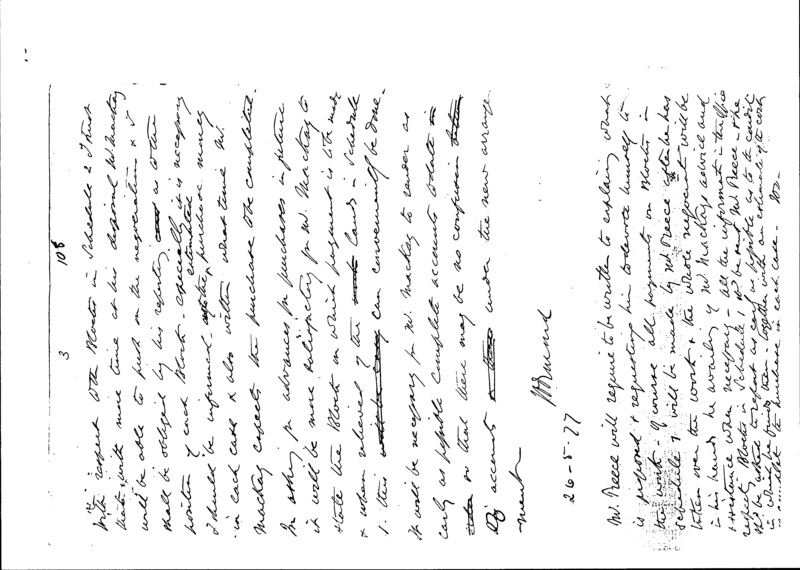 3 108
With respect to the Blocks in Schedule 2 I trust
that with more time at his disposal Mr Mackay
will be able to push on the negotiations & I
shall be obliged by his reporting as to the
position of each Block - especially it is necessary
I should be informed the estimated purchase money
in each case & also within what time Mr
Mackay expects the purchase to be completed.
In asking for advances for purchases in future
it will be more satisfactory for Mr Mackay to
state the Block on which payment is to be made
& when relieved of the lands in Schedule
1. this can conveniently be done.
It will be necessary for Mr Mackay to render as
early as possible complete accounts to date
so that there may be no confusion
of accounts under the new arrange
-ment
26-5-77
Mr Preece will require to be written to explaining what
is proposed & requesting him to devote himself to
the work. Of course all payments on Blocks in
Schedule 1 will be made by Mr Preece after he has
taken over the work & the whole responsibility will be
in his hands he availing of Mr Mackays advice and
assistance when necessary & all the information in the office
respecting Blocks in Schedule 1 to be sent Mr Preece & he
sh'd be asked to report as early as possible as to the condition
in which he finds them together with an estimate of the cost
to purchase in each case.